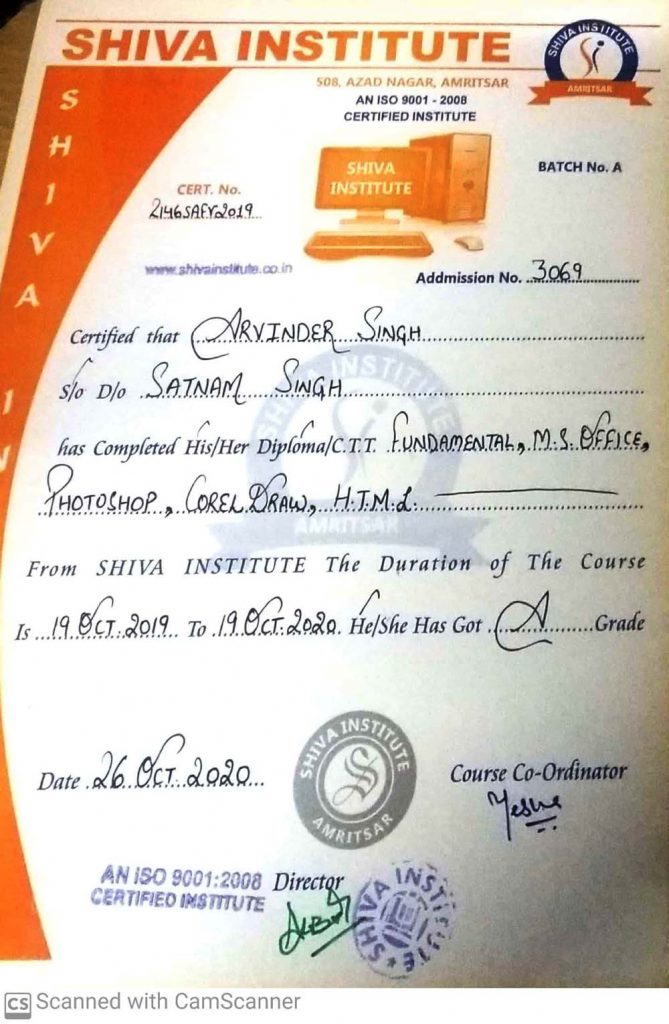 SHIVA INSTITUTE
SHIVA INSTITUTE
AMRITSAR
508, AZAD NAGAR, AMRITSAR
AN ISO 9001 - 2008
CERTIFIED INSTITUTE
SHIVA IN
SHIVA
INSTITUTE
BATCH No. A
CERT. No.
2146SAFY2019
www.shivainstitute.co.in
Addmission No. 3069
Certified that ARVINDER SINGH
S/o D/o SATNAM SINGH
SHIVA INSTITUTE
has Completed His/Her Diploma/C.T.T. FUNDAMENTAL, M.S. OFFICE,
PHOTOSHOP, COREL DRAW, H.T.M.L
AMRITSAR
From SHIVA INSTITUTE The Duration of The Course
Is 19 OCT. 2019 To 19 OCT. 2020. He/She Has Got A Grade
SHIVA INSTITUTE
AMRITSAR
Date 26 OCT. 2020
Course Co-Ordinator
AN ISO 9001:2008
CERTIFIED INSTITUTE
Director
SHIVA INSTITUTE
CS Scanned with CamScanner